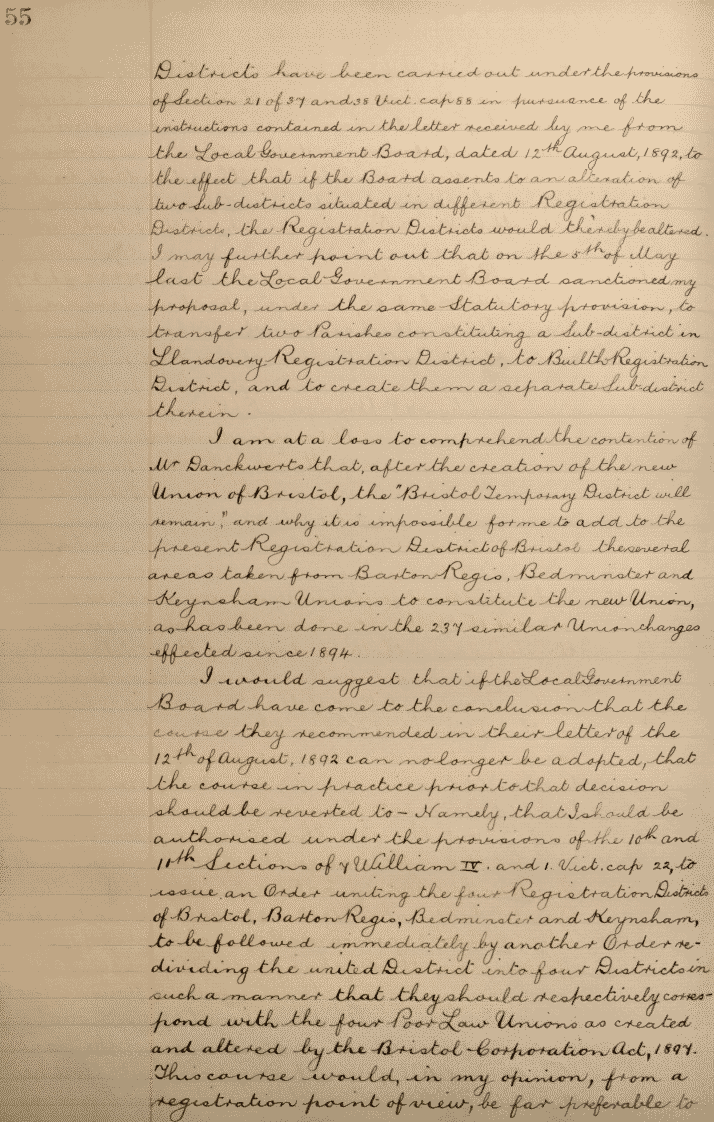 55
Districts have been carried out under the provisions
of Section 21 of 37 and 38 Vict. cap 88 in pursuance of the
instructions contained in the letter received by me from
the Local Government Board, dated 12th August, 1892, to
the effect that if the Board assents to an alteration of
two Sub-districts situated in different Registration
Districts, the Registration Districts would thereby be altered.
I may further point out that on the 5th of May
last the Local Government Board sanctioned my
proposal, under the same Statutory provision, to
transfer two Parishes constituting a Sub-district in
Llandovery Registration District, to Builth Registration
District, and to create them a separate Sub-district
therein.
I am at a loss to comprehend the contention of
Mr Danckwerts that, after the creation of the new
Union of Bristol, the "Bristol Temporary District will
remain," and why it is impossible for me to add to the
present Registration District of Bristol the several
areas taken from Barton Regis, Bedminster and
Keynsham Unions to constitute the new Union,
as has been done in the 237 similar Union changes
effected since 1894.
I would suggest that if the Local Government
Board have come to the conclusion that the
course they recommended in their letter of the
12th of August, 1892 can no longer be adopted, that
the course in practice prior to that decision
should be reverted to - Namely, that I should be
authorised under the provisions of the 10th and
11th Sections of 7 William IV. and 1. Vict. cap 22, to
issue an Order uniting the four Registration Districts
of Bristol, Barton Regis, Bedminster and Keynsham,
to be followed immediately by another Order re-
dividing the united District into four Districts in
such a manner that they should respectively corres-
pond with the four Poor Law Unions as created
and altered by the Bristol Corporation Act, 1897.
This course would, in my opinion, from a
registration point of view, be far preferable to